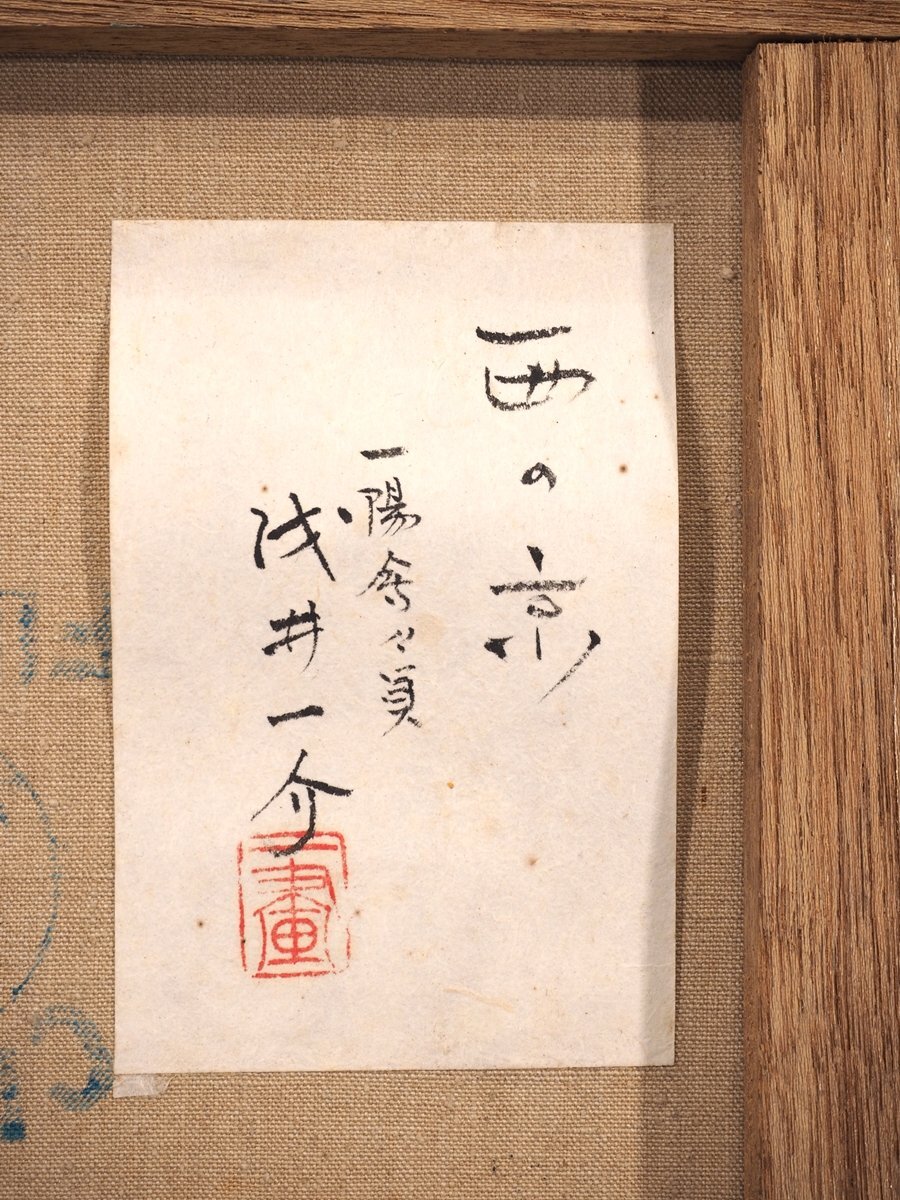 西の京
一陽会々員
浅井一介